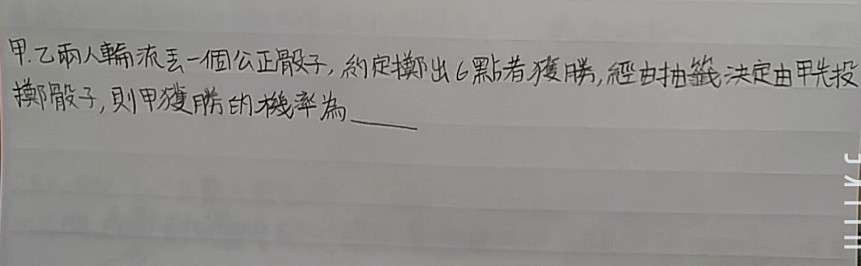 甲.乙兩人輪流丟一個公正骰子,約定擲出6點者獲勝,經由抽籤決定由甲先投
擲骰子,則甲獲勝的機率為____